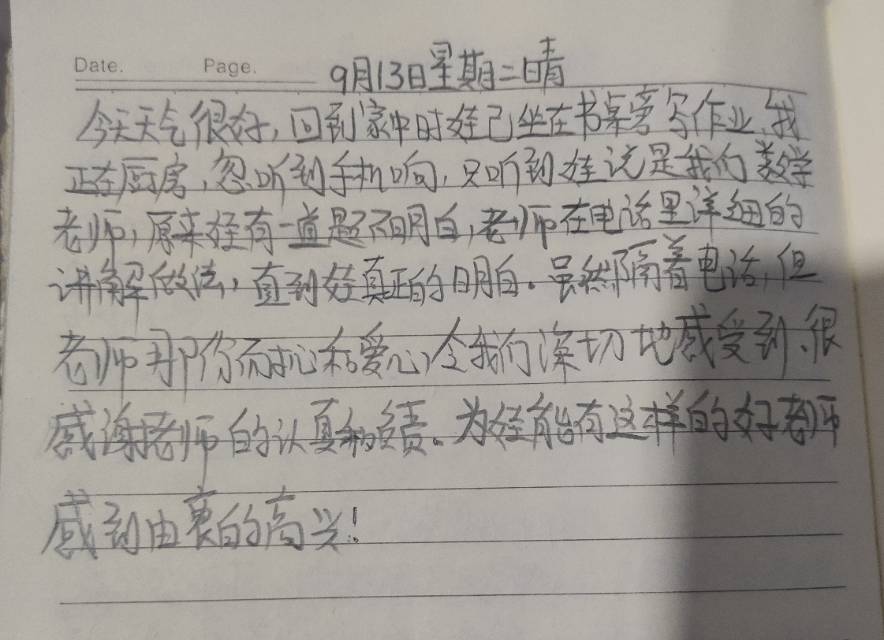 Date. Page. 9月13日星期二晴
今天天气很好，回到家中时娃已坐在书桌旁写作业，我
正在厨房，忽听到手机响，只听到娃说是我们数学
老师，原来娃有一道题不明白，老师在电话里详细的
讲解做法，直到娃真正的明白。虽然隔着电话，但
老师那你而心和爱心令我们深切地感受到、很
感谢老师的认真和负责。为娃能有这样的好老师
感到由衷的高兴！